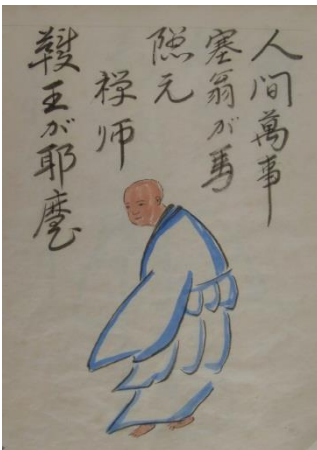 人間萬事
塞翁が馬
隠元
禅師
王が耶